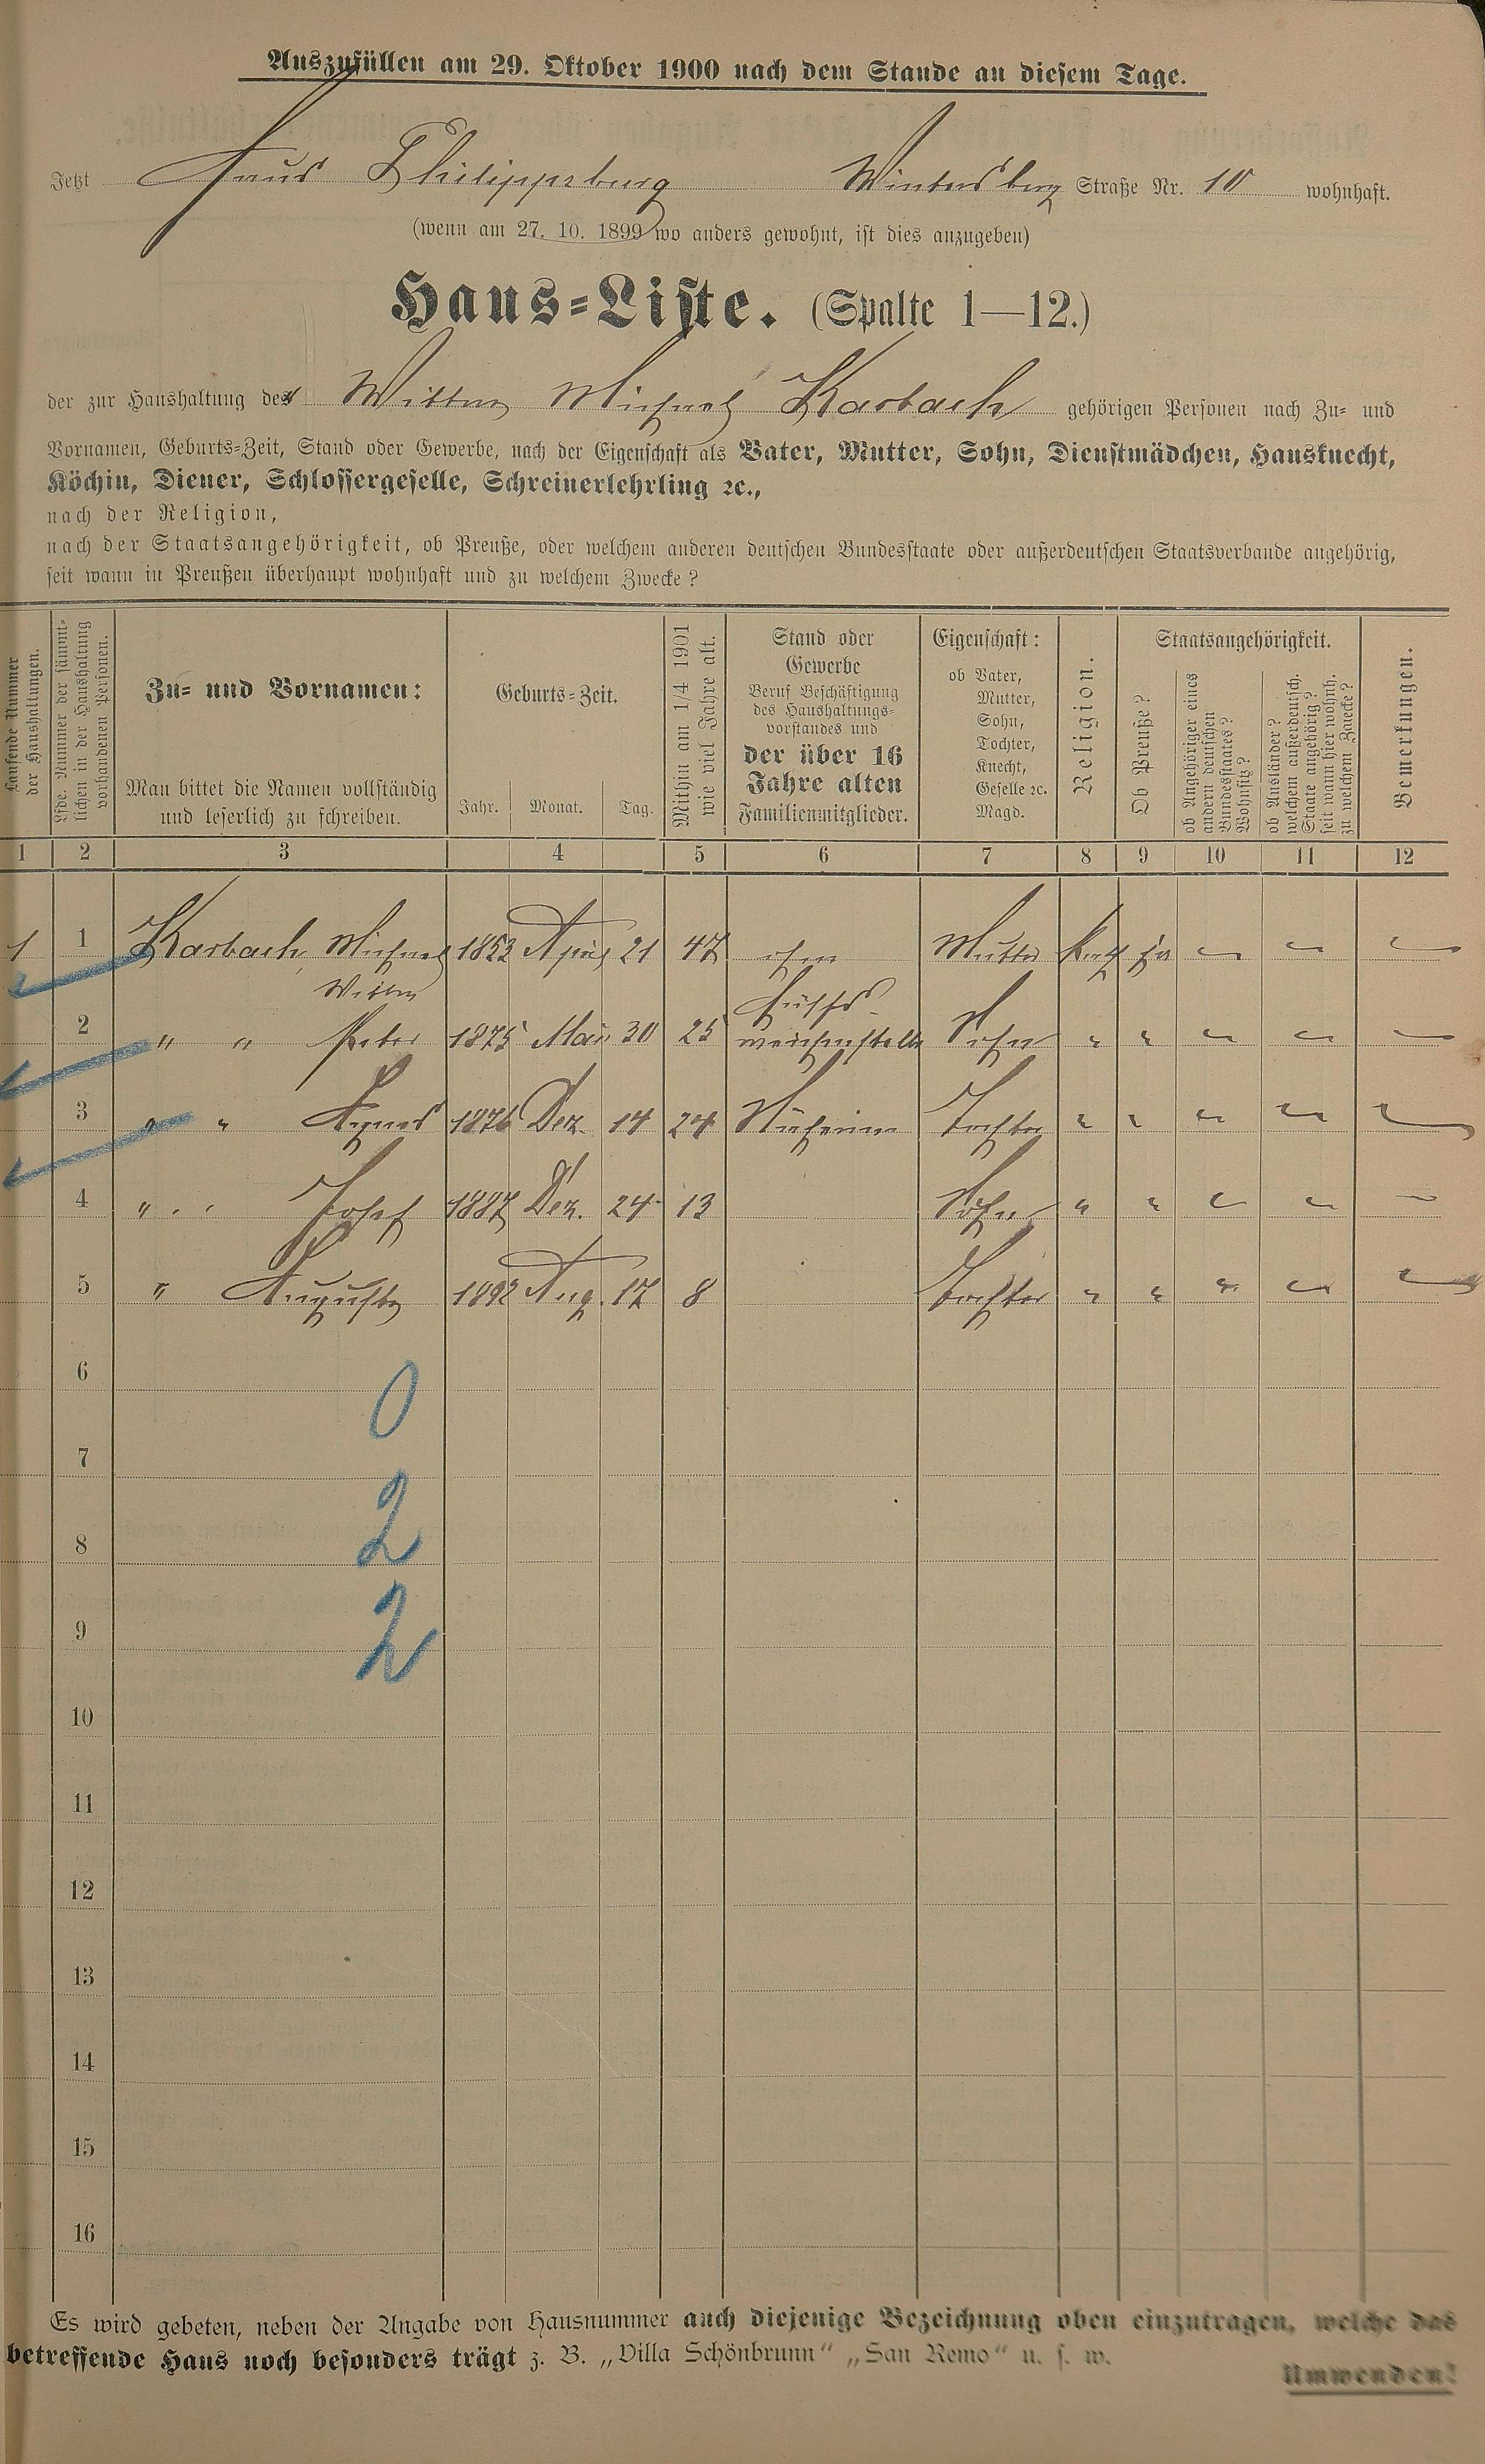 Auszufüllen am 29. Oktober 1900 nach dem Stande an diesem Tage.
Jetzt Haus Philippsburg Wintersberg Straße Nr. 10 wohnhaft.
(wenn am 27. 10. 1899 wo anders gewohnt, ist dies anzugeben)
Haus-Liste. (Spalte 1—12.)
der zur Haushaltung der Wittwe Michael Karbach gehörigen Personen nach Zu- und
Vornamen, Geburts-Zeit, Stand oder Gewerbe, nach der Eigenschaft als Vater, Mutter, Sohn, Dienstmädchen, Hausknecht,
Köchin, Diener, Schlossergeselle, Schreinerlehrling ꝛc.,
nach der Religion,
nach der Staatsangehörigkeit, ob Preuße, oder welchem anderen deutschen Bundesstaate oder außerdeutschen Staatsverbande angehörig,
seit wann in Preußen überhaupt wohnhaft und zu welchem Zwecke?
Laufende Nummer
der Haushaltungen.
Lfde. Nummer der sämmt-
lichen in der Haushaltung
vorhandenen Personen.
Zu- und Vornamen:
Man bittet die Namen vollständig
und leserlich zu schreiben.
Geburts-Zeit.
Jahr. Monat. Tag.
Mithin am 1/4 1901
wie viel Jahre alt.
Stand oder
Gewerbe
Beruf Beschäftigung
des Haushaltungs-
vorstandes und
der über 16
Jahre alten
Familienmitglieder.
Eigenschaft:
ob Vater,
Mutter,
Sohn,
Tochter,
Knecht,
Geselle ꝛc.
Magd.
Religion.
Staatsangehörigkeit.
Ob Preuße?
ob Angehöriger eines
andern deutschen
Bundesstaates?
Wohnsitz?
ob Ausländer?
welchem außerdeutsch.
Staate angehörig?
seit wann hier wohnh.
zu welchem Zwecke?
Bemerkungen.
1 2 3 4 5 6 7 8 9 10 11 12
1 1 Karbach, Michael 1853 April 21 47 ohne Mutter Kath ja — — —
Wittwe
Hülfs-
2 " " Peter 1875 Mai 30 25 weichensteller Sohn " " " " —
3 " " Agnes 1876 Dez. 14 24 Näherin Tochter " " " " —
4 " " Josef 1887 Dez. 24 13 Sohn " " " " —
5 " Auguste 1892 Aug. 17 8 Tochter " " " " —
6
0
7
2
8
9
2
10
11
12
13
14
15
16
Es wird gebeten, neben der Angabe von Hausnummer auch diejenige Bezeichnung oben einzutragen, welche das
betreffende Haus noch besonders trägt z. B. „Villa Schönbrunn“ „San Remo“ u. s. w.
Umwenden!